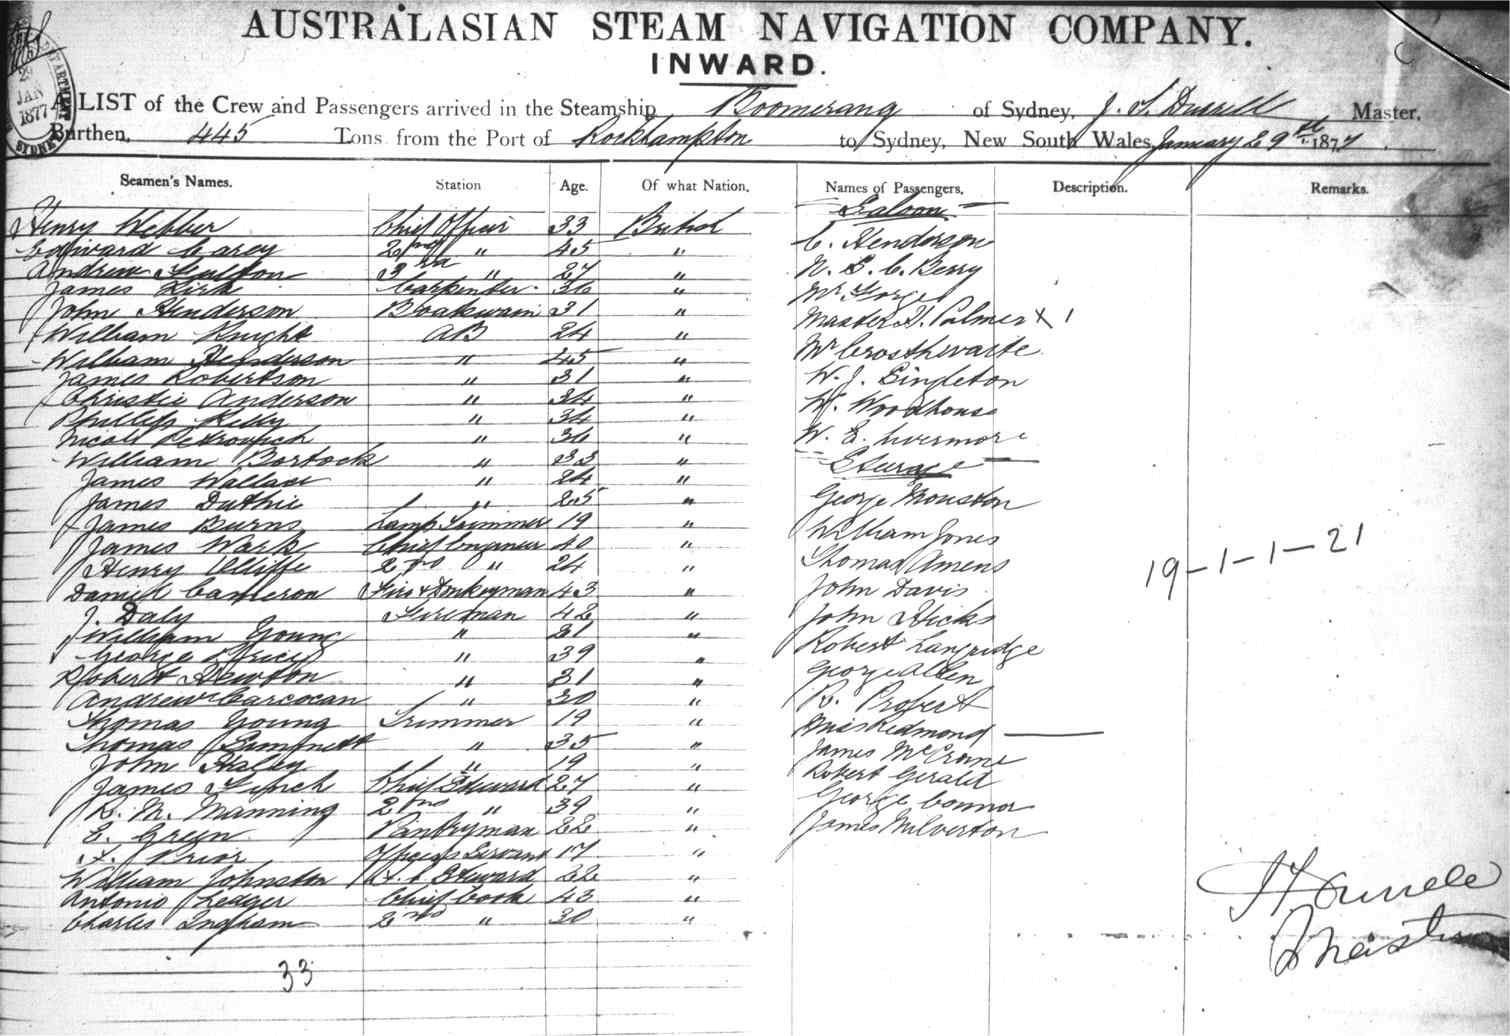 AUSTRALASIAN STEAM NAVIGATION COMPANY.
INWARD.
29
JAN
1877
SYDNEY
A LIST of the Crew and Passengers arrived in the Steamship Boomerang of Sydney, Master,
Burthen, 445 Tons from the Port of Rockhampton to Sydney, New South Wales, January 29th 1877
Seamen's Names. Station Age. Of what Nation. Names of Passengers, Description. Remarks.
Saloon
Henry Webber Chief Officer 33 British
Edward Carey 2nd " 45 " C. Henderson
Andrew Fulton 3rd " 27 " Berry
James Kirk Carpenter 36 " Mr
John Henderson Boatswain 31 " Master H. Palmer x 1
William Knight AB 24 "
William Henderson " 45 " Mr Crosthwaite
James Robertson " 31 " W. J. Singleton
Christie Anderson " 34 " W. Woodhouse
Phillip Kelly " 34 "
Nicola " 36 " W. E. Livermore
William Bostock " 33 " Steerage
James Wallace " 24 "
James Duthie " 25 " George Mouston
James Burns Lamp Trimmer 19 " William Jones
James Wark Chief Engineer 40 "
Henry 2nd " 24 " Thomas Amens
Daniel Cameron Fire & Donkeyman 43 " John Davis
J. Daly Fireman 42 " John Hicks
William Young " 21 " Robert Langridge
George " 39 "
Robert Newton " 31 " George Allen
Andrew Corcoran " 30 " R. Probert
Thomas Young Trimmer 19 " Miss Redmond
Thomas " 35 " James McCrone
John Haley " 19 " Robert Gerald
James Lynch Chief Steward 27 " George Connor
R. M. Manning 2nd " 39 "
E. Green Pantryman 22 " James Milverton
Prior Officers Servant 17 "
William Johnston Steward 22 "
Antonio Ledger Chief Cook 43 "
Charles Ingham 2nd " 30 "
33
19-1-1-21
Master